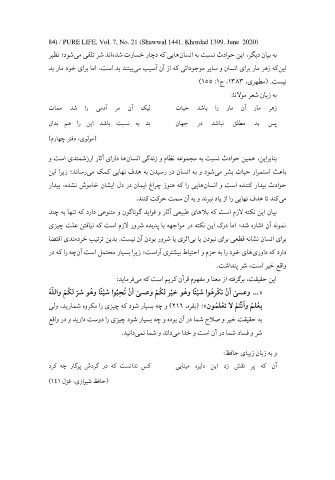 84) / PURE LIFE, Vol. 7, No. 21 (Shawwal 1441. Khordad 1399. June 2020)
به بیان دیگر، این حوادث نسبت به انسان‌هایی که دچار خسارت شده‌اند شر تلقی می‌شود؛ نظیر
این‌که زهر مار برای انسان و سایر موجوداتی که از آن آسیب می‌بینند بد است، اما برای خود مار بد
نیست. (مطهری، ۱۳۸۳، ج۱: ۱۵۵)
به زبان شعر مولانا:
زهر مار آن مار را باشد حیات لیک آن مر آدمی را شد ممات
پس بد مطلق نباشد در جهان بد به نسبت باشد این را هم بدان
(مولوی، دفتر چهارم)
بنابراین، همین حوادث نسبت به مجموعه نظام و زندگی انسان‌ها دارای آثار ارزشمندی است و
باعث استمرار حیات بشر می‌شود و به انسان در رسیدن به هدف نهایی کمک می‌رساند؛ زیرا این
حوادث بیدار کننده است و انسان‌هایی را که هنوز چراغ ایمان در دل ایشان خاموش نشده، بیدار
می‌کند تا هدف نهایی را از یاد نبرند و به آن سمت حرکت کنند.
بیان این نکته لازم است که بلاهای طبیعی آثار و فواید گوناگون و متنوعی دارد که تنها به چند
نمونه آن اشاره شد؛ اما درک این نکته در مواجهه با پدیده شرور لازم است که نیافتن علت چیزی
برای انسان نشانه قطعی برای نبودن یا بی‌اثری یا شرور بودن آن نیست. بدین ترتیب خردمندی اقتضا
دارد که داوری‌های خود را به حزم و احتیاط بیشتری آراست؛ زیرا بسیار محتمل است آن‌چه را که در
واقع خیر است، شر پنداشت.
این حقیقت، برگرفته از معنا و مفهوم قرآن کریم است که می‌فرماید:
«... وعسىَ أَنْ تَكْرَهُوا شَيْئًا وَهُوَ خَيْر لَكُمْ وعسىَ أَنْ تُحِبُّوا شَيْئًا وَهُوَ شَرّ لَكُمْ وَاللَّهُ
يَعْلَمُ وَأَنْتُمْ لَا تَعْلَمُونَ»؛ (بقره، ۲۱۶) و چه بسیار شود که چیزی را مکروه شمارید، ولی
به حقیقت خیر و صلاح شما در آن بوده و چه بسیار شود چیزی را دوست دارید و در واقع
شر و فساد شما در آن است و خدا می‌داند و شما نمی‌دانید.
و به زبان زیبای حافظ:
آن که پر نقش زد این دایره مینایی کس ندانست که در گردش پرگار چه کرد
(حافظ شیرازی، غزل ۱۴۱)